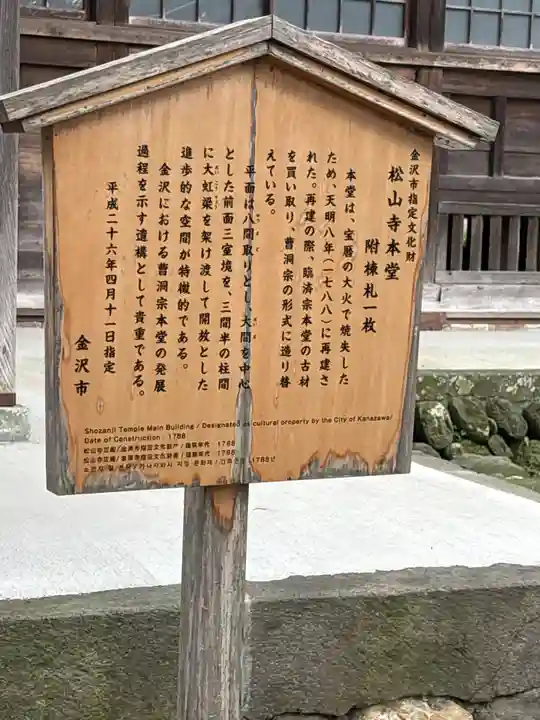 金沢市指定文化財
松山寺本堂
附棟札一枚
本堂は、宝暦の大火で焼失した
ため、天明八年(一七八八)に再建さ
れた。再建の際、臨済宗本堂の古材
を買い取り、曹洞宗の形式に造り替
えている。
平面は八間取りとし、大間を中心
とした前面三室境を、三間半の柱間
に大虹梁を架け渡して開放とした
進歩的な空間が特徴的である。
金沢における曹洞宗本堂の発展
過程を示す遺構として貴重である。
平成二十六年四月十一日指定
金沢市
Shozanji Temple Main Building / Designated as cultural property by the City of Kanazawa/
Date of Construction : 1788
松山寺正殿/金泽市指定文化财产/建筑年代 : 1788
松山寺正殿/金澤市指定文化財產/建築年代 : 1788
쇼잔지 절 본당/가나자와시 지정 문화재/건축연도 : 1788년